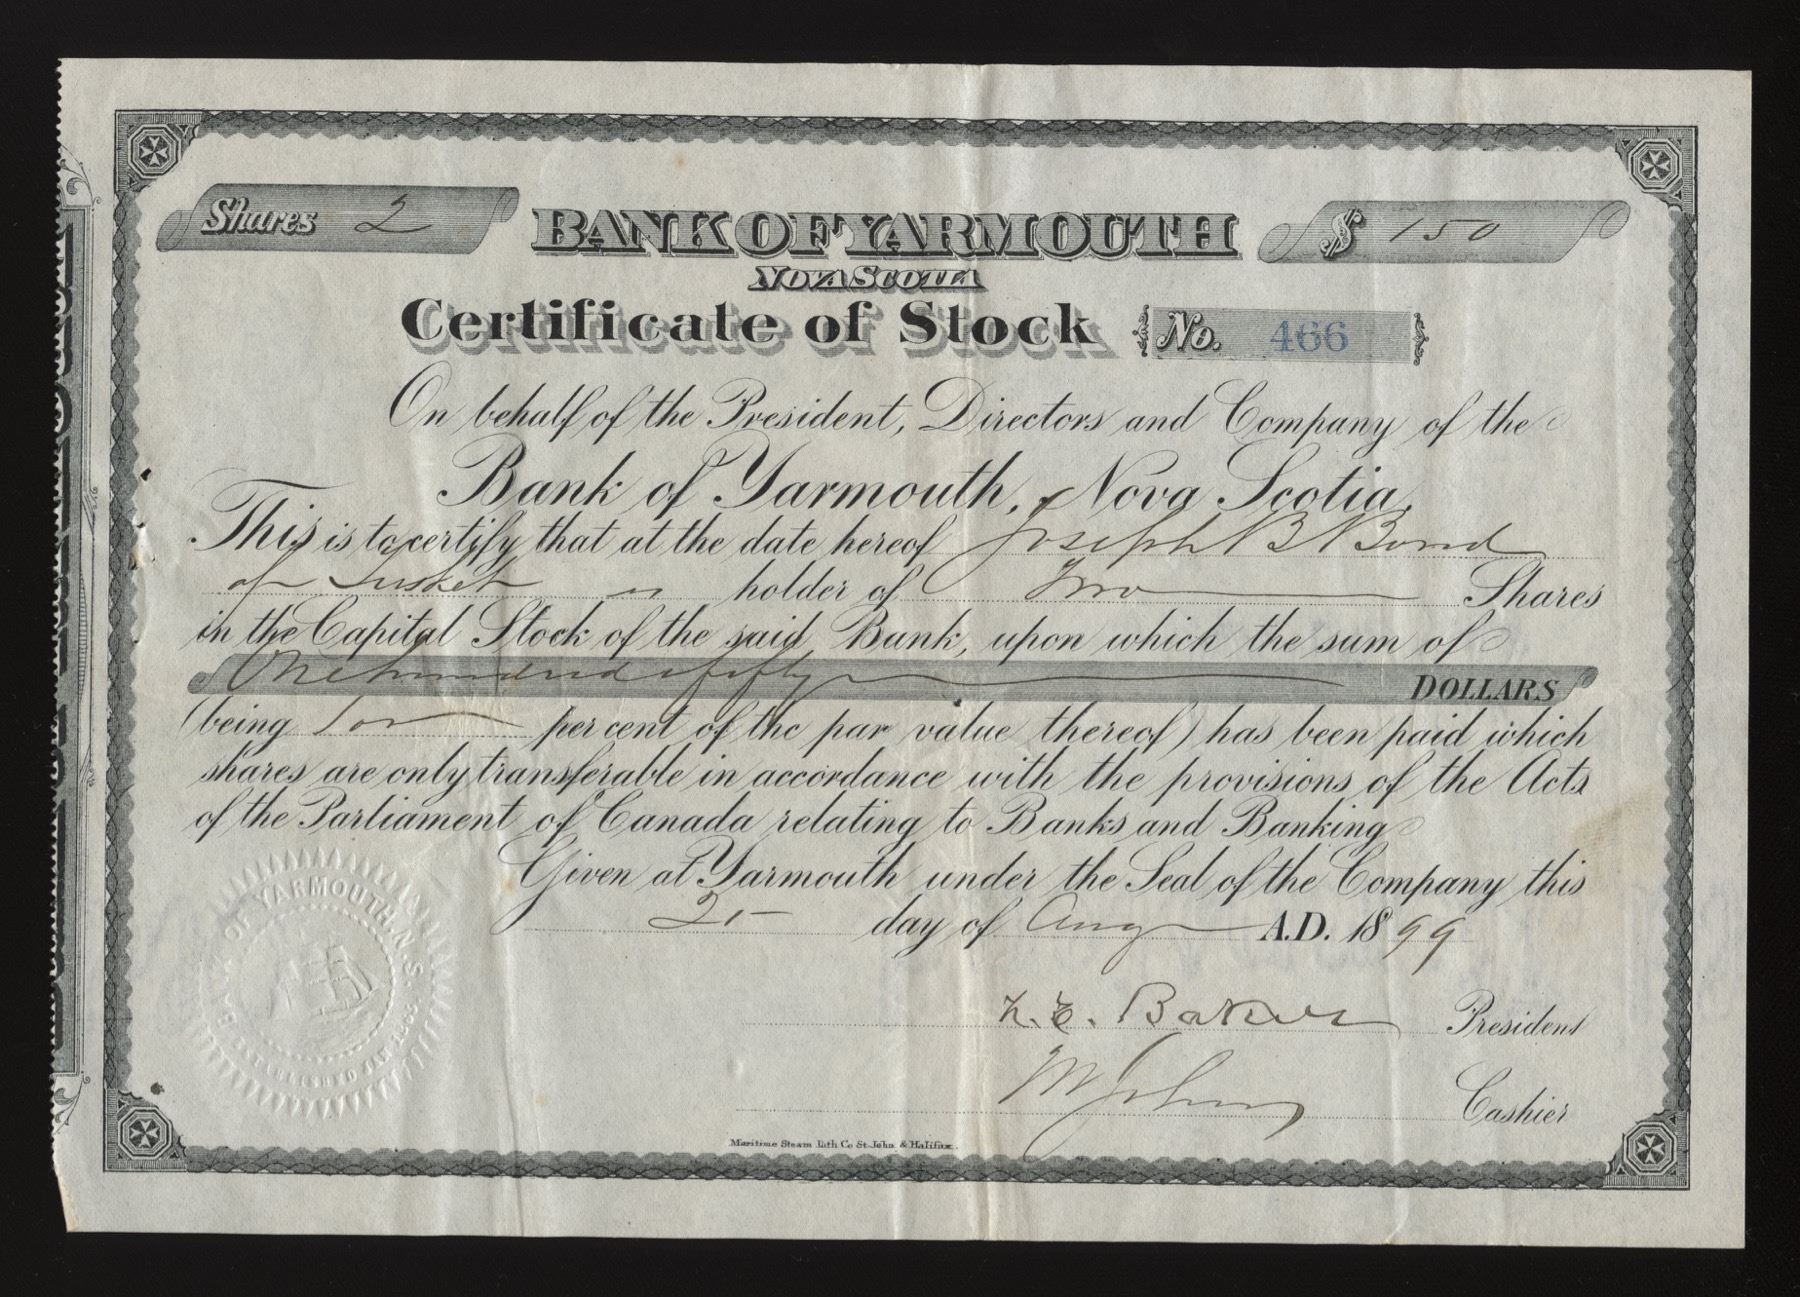 Shares 2
BANK OF YARMOUTH
$ 150
NOVA SCOTIA
Certificate of Stock No. 466
On behalf of the President, Directors and Company of the
Bank of Yarmouth, Nova Scotia,
This is to certify that at the date hereof Joseph B Bond
of Tusket is holder of Two Shares
in the Capital Stock of the said Bank, upon which the sum of
One hundred & fifty DOLLARS
(being 100 per cent of the par value thereof) has been paid which
shares are only transferable in accordance with the provisions of the Acts
of the Parliament of Canada relating to Banks and Banking
Given at Yarmouth under the Seal of the Company this
day of Aug A.D. 1899
L. E. Baker President
Cashier
BANK OF YARMOUTH, N.S.
ESTABLISHED JAN 1865
Maritime Steam Lith Co St. John & Halifax.